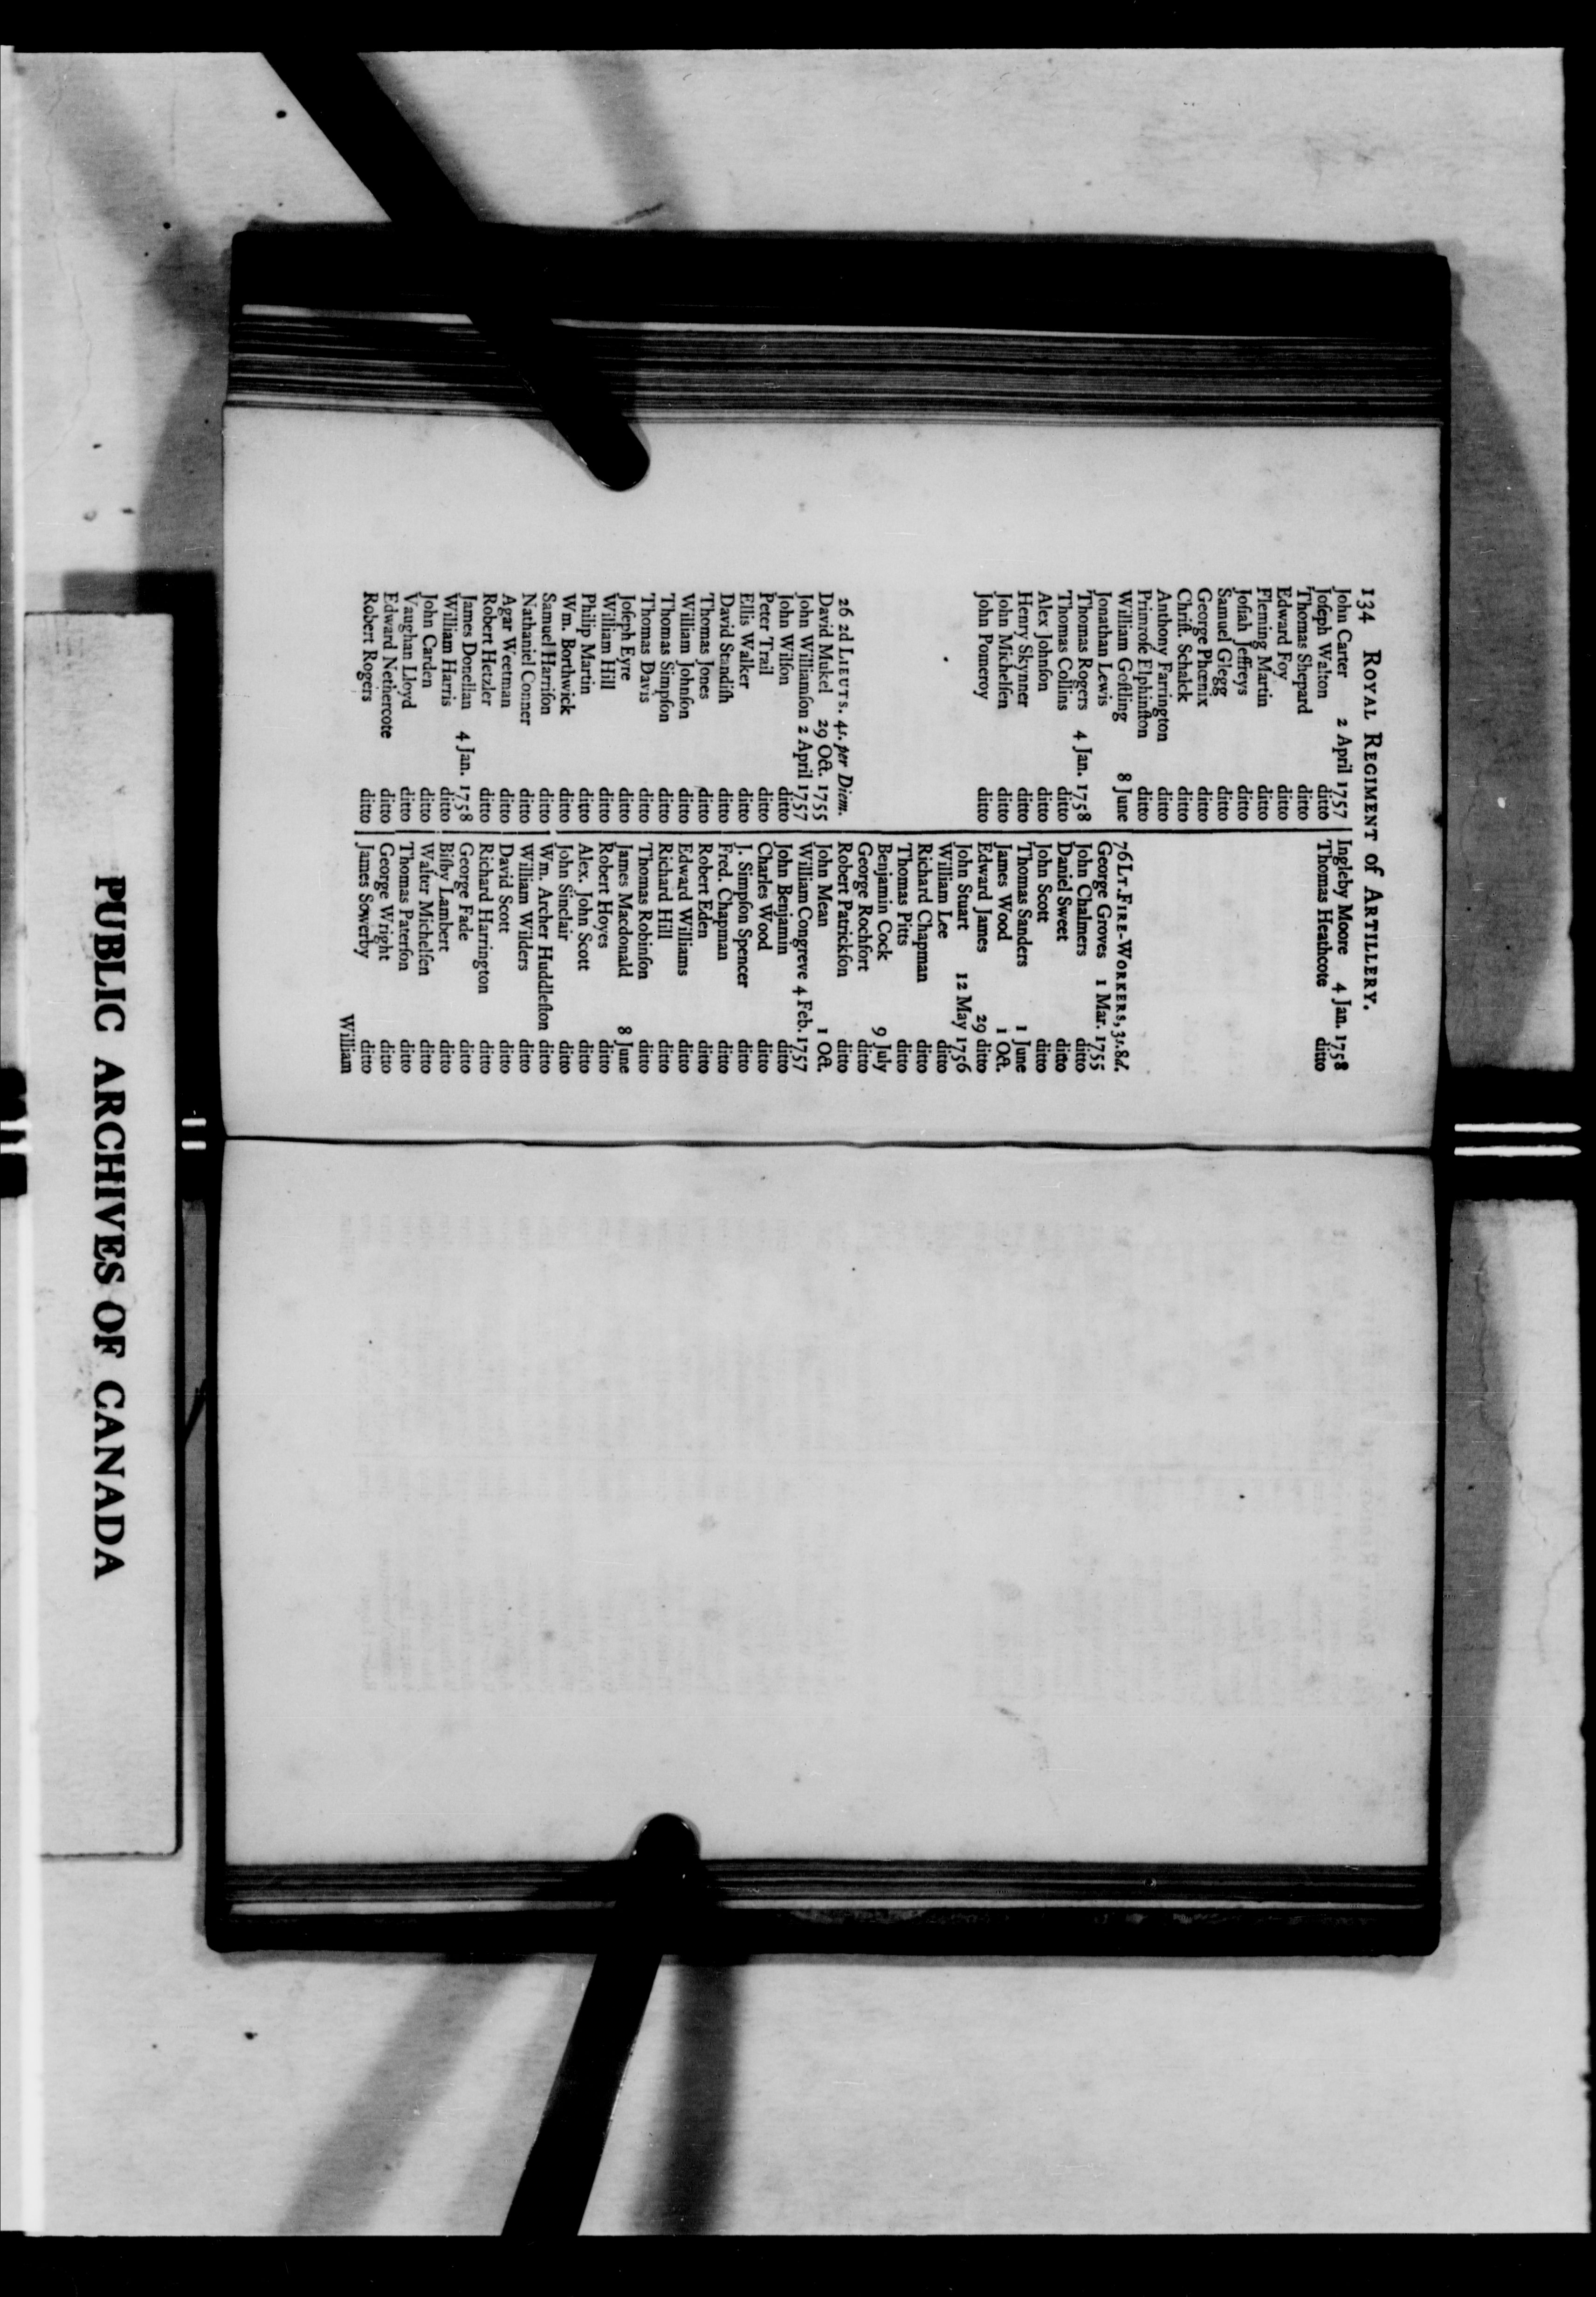 134 ROYAL REGIMENT of ARTILLERY.
John Carter 2 April 1757
Joſeph Walton ditto
Thomas Shepard ditto
Edward Foy ditto
Fleming Martin ditto
Joſiah Jeffreys ditto
Samuel Glegg ditto
George Phœnix ditto
Chriſt. Schalck ditto
Anthony Farrington ditto
Primroſe Elphinſton ditto
William Goſtling 8 June
Jonathan Lewis
Thomas Rogers 4 Jan. 1758
Thomas Collins ditto
Alex Johnſon ditto
Henry Skynner ditto
John Michelſen ditto
John Pomeroy ditto
26 2d LIEUTS. 4s. per Diem.
David Mukel 29 Oct. 1755
John Williamſon 2 April 1757
John Wilſon ditto
Peter Trail ditto
Ellis Walker ditto
David Standiſh ditto
Thomas Jones ditto
William Johnſon ditto
Thomas Simpſon ditto
Thomas Davis ditto
Joſeph Eyre ditto
William Hill ditto
Philip Martin ditto
Wm. Borthwick ditto
Samuel Harriſon ditto
Nathaniel Conner ditto
Agar Weetman ditto
Robert Hetzler ditto
James Donellan 4 Jan. 1758
William Harris ditto
John Carden ditto
Vaughan Lloyd ditto
Edward Nethercote ditto
Robert Rogers ditto
Ingleby Moore 4 Jan. 1758
Thomas Heathcote ditto
76 LT. FIRE-WORKERS, 3s. 8d.
George Groves 1 Mar. 1755
John Chalmers ditto
Daniel Sweet ditto
John Scott ditto
Thomas Sanders 1 June
James Wood 1 Oct.
Edward James 29 ditto
John Stuart 12 May 1756
William Lee ditto
Richard Chapman ditto
Thomas Pitts ditto
Benjamin Cock 9 July
George Rochfort ditto
Robert Patrickſon ditto
John Mean 1 Oct.
William Congreve 4 Feb. 1757
John Benjamin ditto
Charles Wood ditto
J. Simpſon Spencer ditto
Fred. Chapman ditto
Robert Eden ditto
Edward Williams ditto
Richard Hill ditto
Thomas Robinſon ditto
James Macdonald 8 June
Robert Hoyes ditto
Alex. John Scott ditto
John Sinclair ditto
Wm. Archer Huddleſton ditto
William Wilders ditto
David Scott ditto
Richard Harrington ditto
George Fade ditto
Biſby Lambert ditto
Walter Michelſen ditto
Thomas Paterſon ditto
George Wright ditto
James Sowerby ditto
William
PUBLIC ARCHIVES OF CANADA